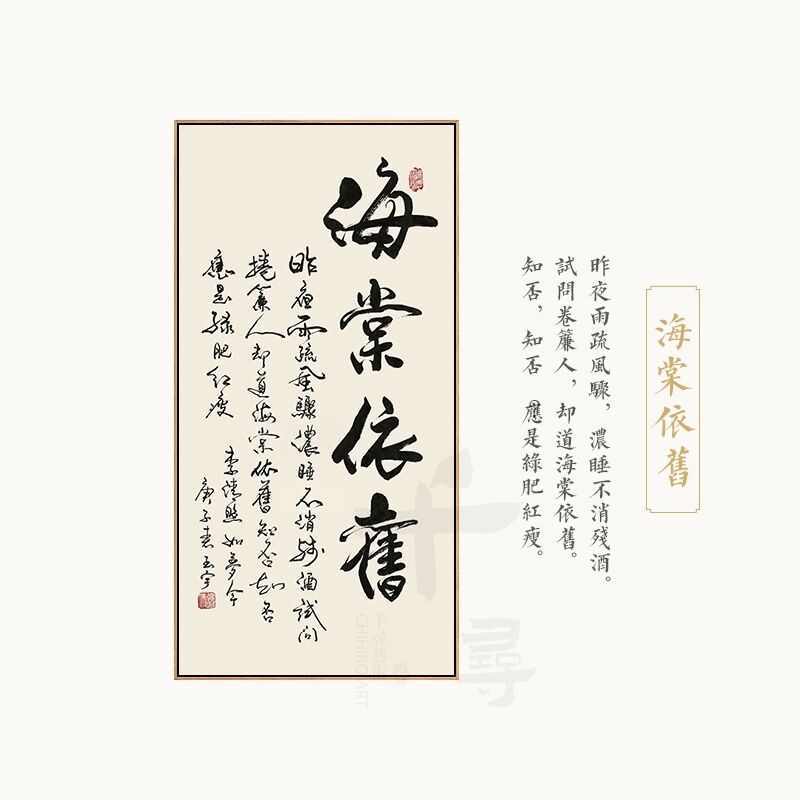 海棠依舊
昨夜雨疏風驟，濃睡不消殘酒。
試問卷簾人，却道海棠依舊。
知否，知否 應是綠肥紅瘦。
海棠依舊
昨夜雨疏風驟濃睡不消殘酒試問
捲簾人却道海棠依舊知否知否
應是綠肥紅瘦
李清照如夢令
庚子玉宇
千尋
CHIHIRO ART